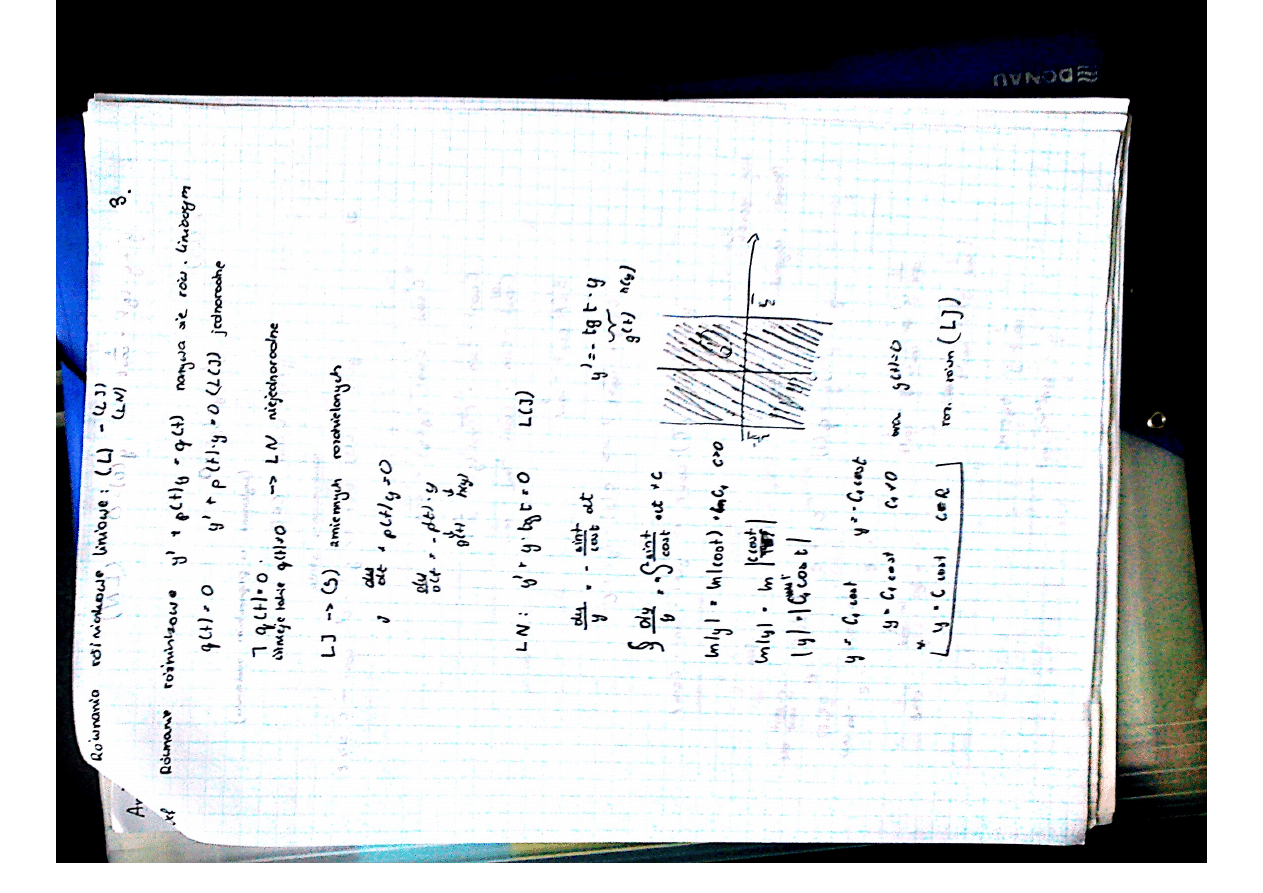 Równania różniczkowe liniowe: (L) - (LJ)
(LN)
3.
Równanie różniczkowe y' + p(t)y = q(t) nazywa się rów. liniowym
q(t) = 0 y' + p(t)·y = 0 (LJ) jednorodne
istnieje takie q(t)≠0 -> LN niejednorodne
LJ -> (S) zmiennych rozdzielonych
dy/dt + p(t)y = 0
dy/dt = -p(t)·y
g(t) h(y)
LN: y' + y·tg t = 0 L(J)
y' = - tg t · y
g(t) h(y)
dy/y = - sint/cost dt
∫ dy/y = -∫ sint/cost dt + C
ln|y| = ln|cost| + ln C₁ C>0
ln|y| = ln |C cost|
|y| = |C₁ cos t|
y = C₁ cost y = -C₁ cost
y = C₁ cost C₁ ≠ 0
* y = C cost C∈R roz. równ (LJ)
-π/2 π/2
DONAU